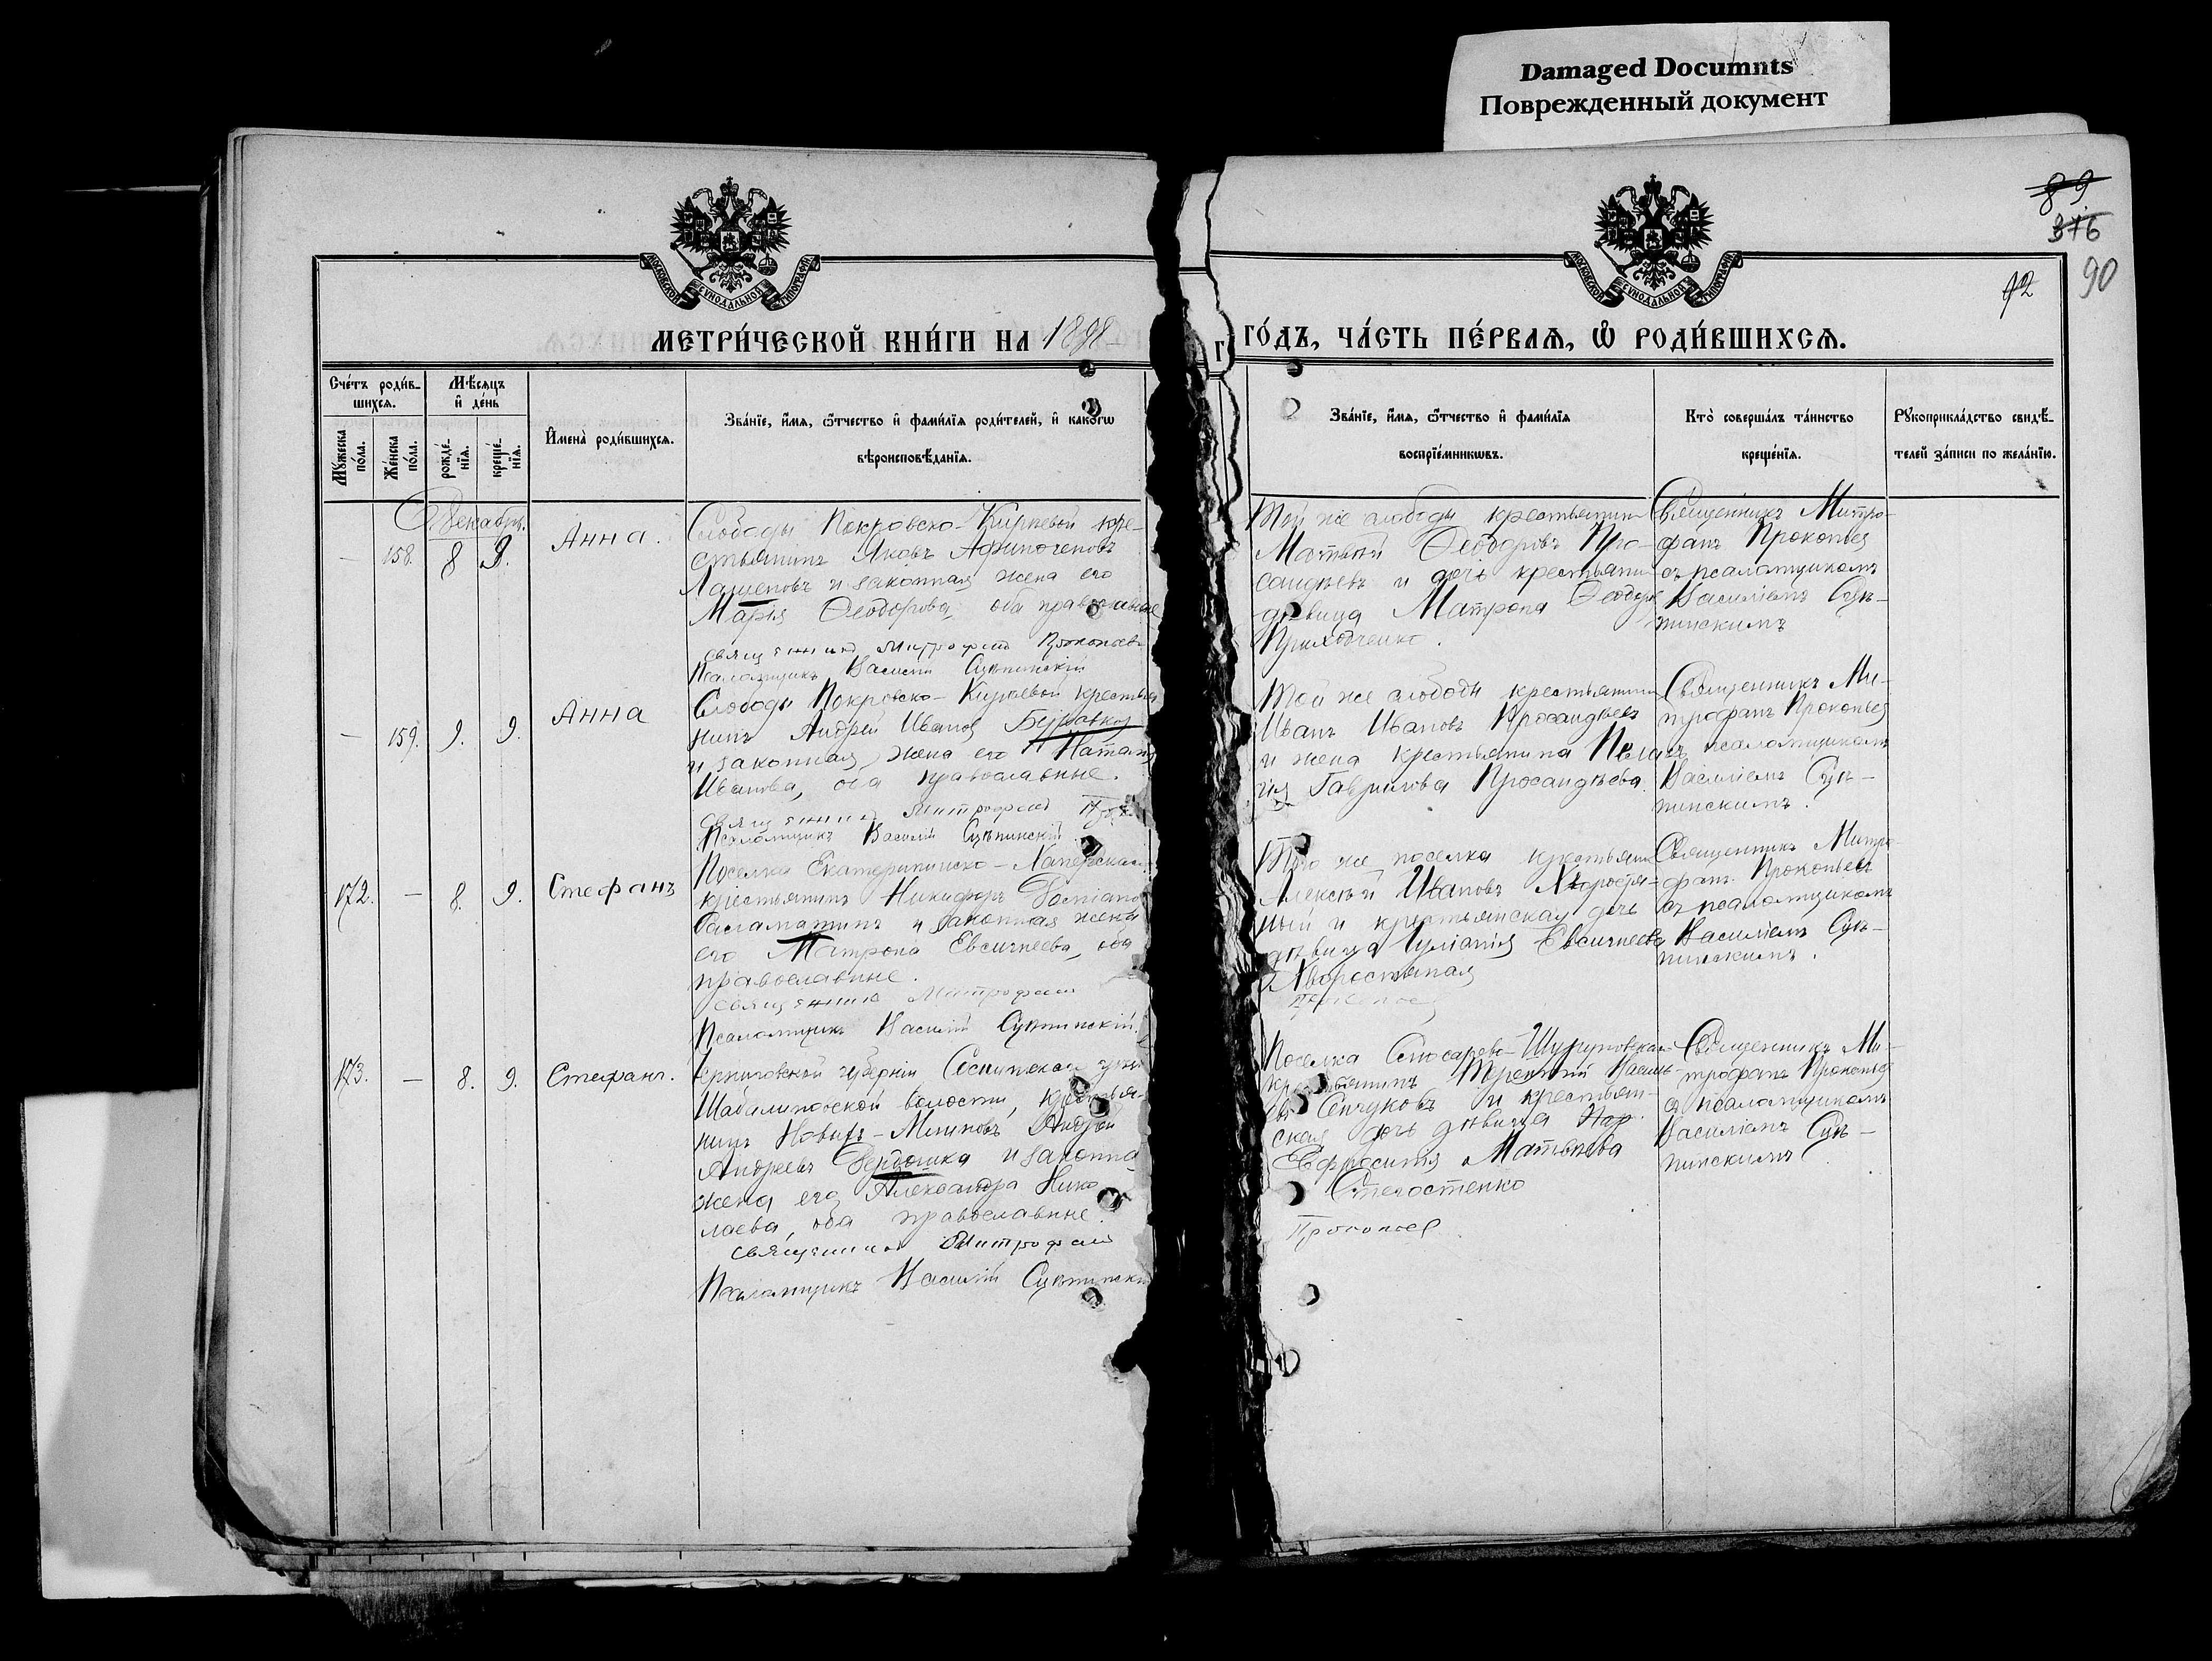 Damaged Documnts
Поврежденный документ
89
376
90
92
МОСКОВСКОЙ СѴНОДАЛЬНОЙ ТИПОГРАФІИ
МОСКОВСКОЙ СѴНОДАЛЬНОЙ ТИПОГРАФІИ
МЕТРИ́ЧЕСКОЙ КНИ́ГИ НА 1898
Г
ГО́ДЪ, ЧА́СТЬ ПЕ́РВАѦ, Ѡ҆ РОДИ́ВШИХСѦ.
Сче́тъ роди́в-
шихсѧ.
Мѣ́сѧцъ
и҆ де́нь
Мꙋ́жеска по́ла.
Же́нска по́ла.
рожде́-
нїѧ.
креще́-
нїѧ.
И҆мена̀ роди́вшихсѧ.
Зва́нїе, и҆́мѧ, ѻ҆́тчество и҆ фами́лїѧ роди́телей, и҆ како́гѡ
вѣроисповѣ́данїѧ.
Зва́нїе, и҆́мѧ, ѻ҆́тчество и҆ фами́лїѧ
воспрїе́мникѡвъ.
Кто̀ соверша́лъ та́инство
креще́нїѧ.
Рꙋкоприкла́дство свидѣ́-
телей за́писи по жела́нїю.
Декабрь.
—
158.
8
9.
Анна.
Слободы Покровско-Киреевой кре-
стьянинъ Яковъ
и законная жена его
Марія Ѳеодорова, оба православные
священникъ Митрофанъ Прокопьев
Псаломщикъ Василій Сцепинскій
Той же слободы крестьянинъ
Матвѣй Ѳеодоровъ Про-
сандѣевъ и дочь крестьянина
дѣвица Матрона Ѳеодор
Приходченко.
Священникъ Митро-
фанъ Прокопьев
съ псаломщикомъ
Василіемъ Сце-
пинскимъ
—
159.
9.
9.
Анна
Слободы Покровско-Киреевой крестья
нинъ Андрей Иванов
и законная жена его Наталія
Иванова, оба православные.
священникъ Митрофанъ
Псаломщикъ Василій Сцепинскій
Той же слободы крестьянинъ
Иванъ Ивановъ Просандѣевъ
и жена крестьянина Пела
гія Гаврилова Просандѣева.
Священникъ Ми-
трофанъ Прокопьев
съ псаломщикомъ
Василіемъ Сце-
пинскимъ.
172.
—
8.
9.
Стефанъ
Поселка Екатерининско-Хаперскаго
крестьянинъ Никифоръ
и законная жена
его Матрона Евсигнеева, оба
православные.
священникъ Митрофанъ
Псаломщикъ Василій Сцепинскій.
Того же поселка крестьянинъ
Алексѣй Ивановъ Хворостя-
ный и крестьянская дочь
дѣвица Іуліанія Евсигнеева
Хворостяная
Прокопьев
Священникъ Митро
фанъ Прокопьев
съ псаломщикомъ
Василіемъ Сце-
пинскимъ.
173.
—
8.
9.
Стефанъ.
Черниговской губерніи Сосницкаго уѣзда
Шабалиновской волости, крестья-
нинъ Андрей
Андреевъ и законная
жена его Александра Нико
лаева, оба православные.
священникъ Митрофанъ
Псаломщикъ Василій Сцепинскій
Поселка
крестьянинъ Терентій Василь
евъ Сенчуковъ и крестьян-
ская дочь дѣвица
Евфросинія Матвѣева
Прокопьев
Священникъ Ми-
трофанъ Прокопьев
съ псаломщикомъ
Василіемъ Сце-
пинскимъ.